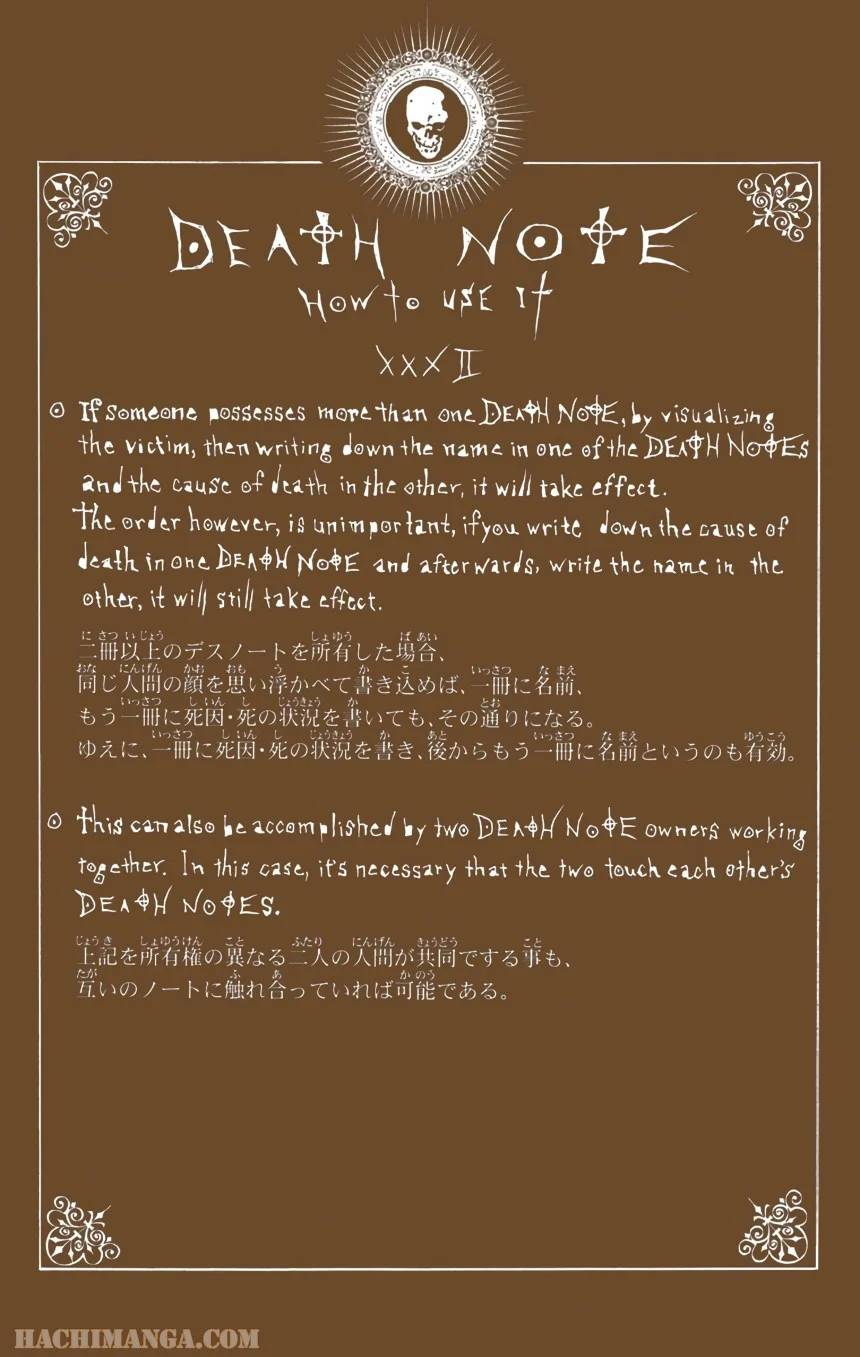 DEATH NOTE
HOW TO USE IT
XXXII
If someone possesses more than one DEATH NOTE, by visualizing
the victim, then writing down the name in one of the DEATH NOTES
and the cause of death in the other, it will take effect.
The order however, is unimportant, if you write down the cause of
death in one DEATH NOTE and afterwards, write the name in the
other, it will still take effect.
二冊以上のデスノートを所有した場合、
同じ人間の顔を思い浮かべて書き込めば、一冊に名前、
もう一冊に死因・死の状況を書いても、その通りになる。
ゆえに、一冊に死因・死の状況を書き、後からもう一冊に名前というのも有効。
This can also be accomplished by two DEATH NOTE owners working
together. In this case, it's necessary that the two touch each other's
DEATH NOTES.
上記を所有権の異なる二人の人間が共同でする事も、
互いのノートに触れ合っていれば可能である。
HACHIMANGA.COM